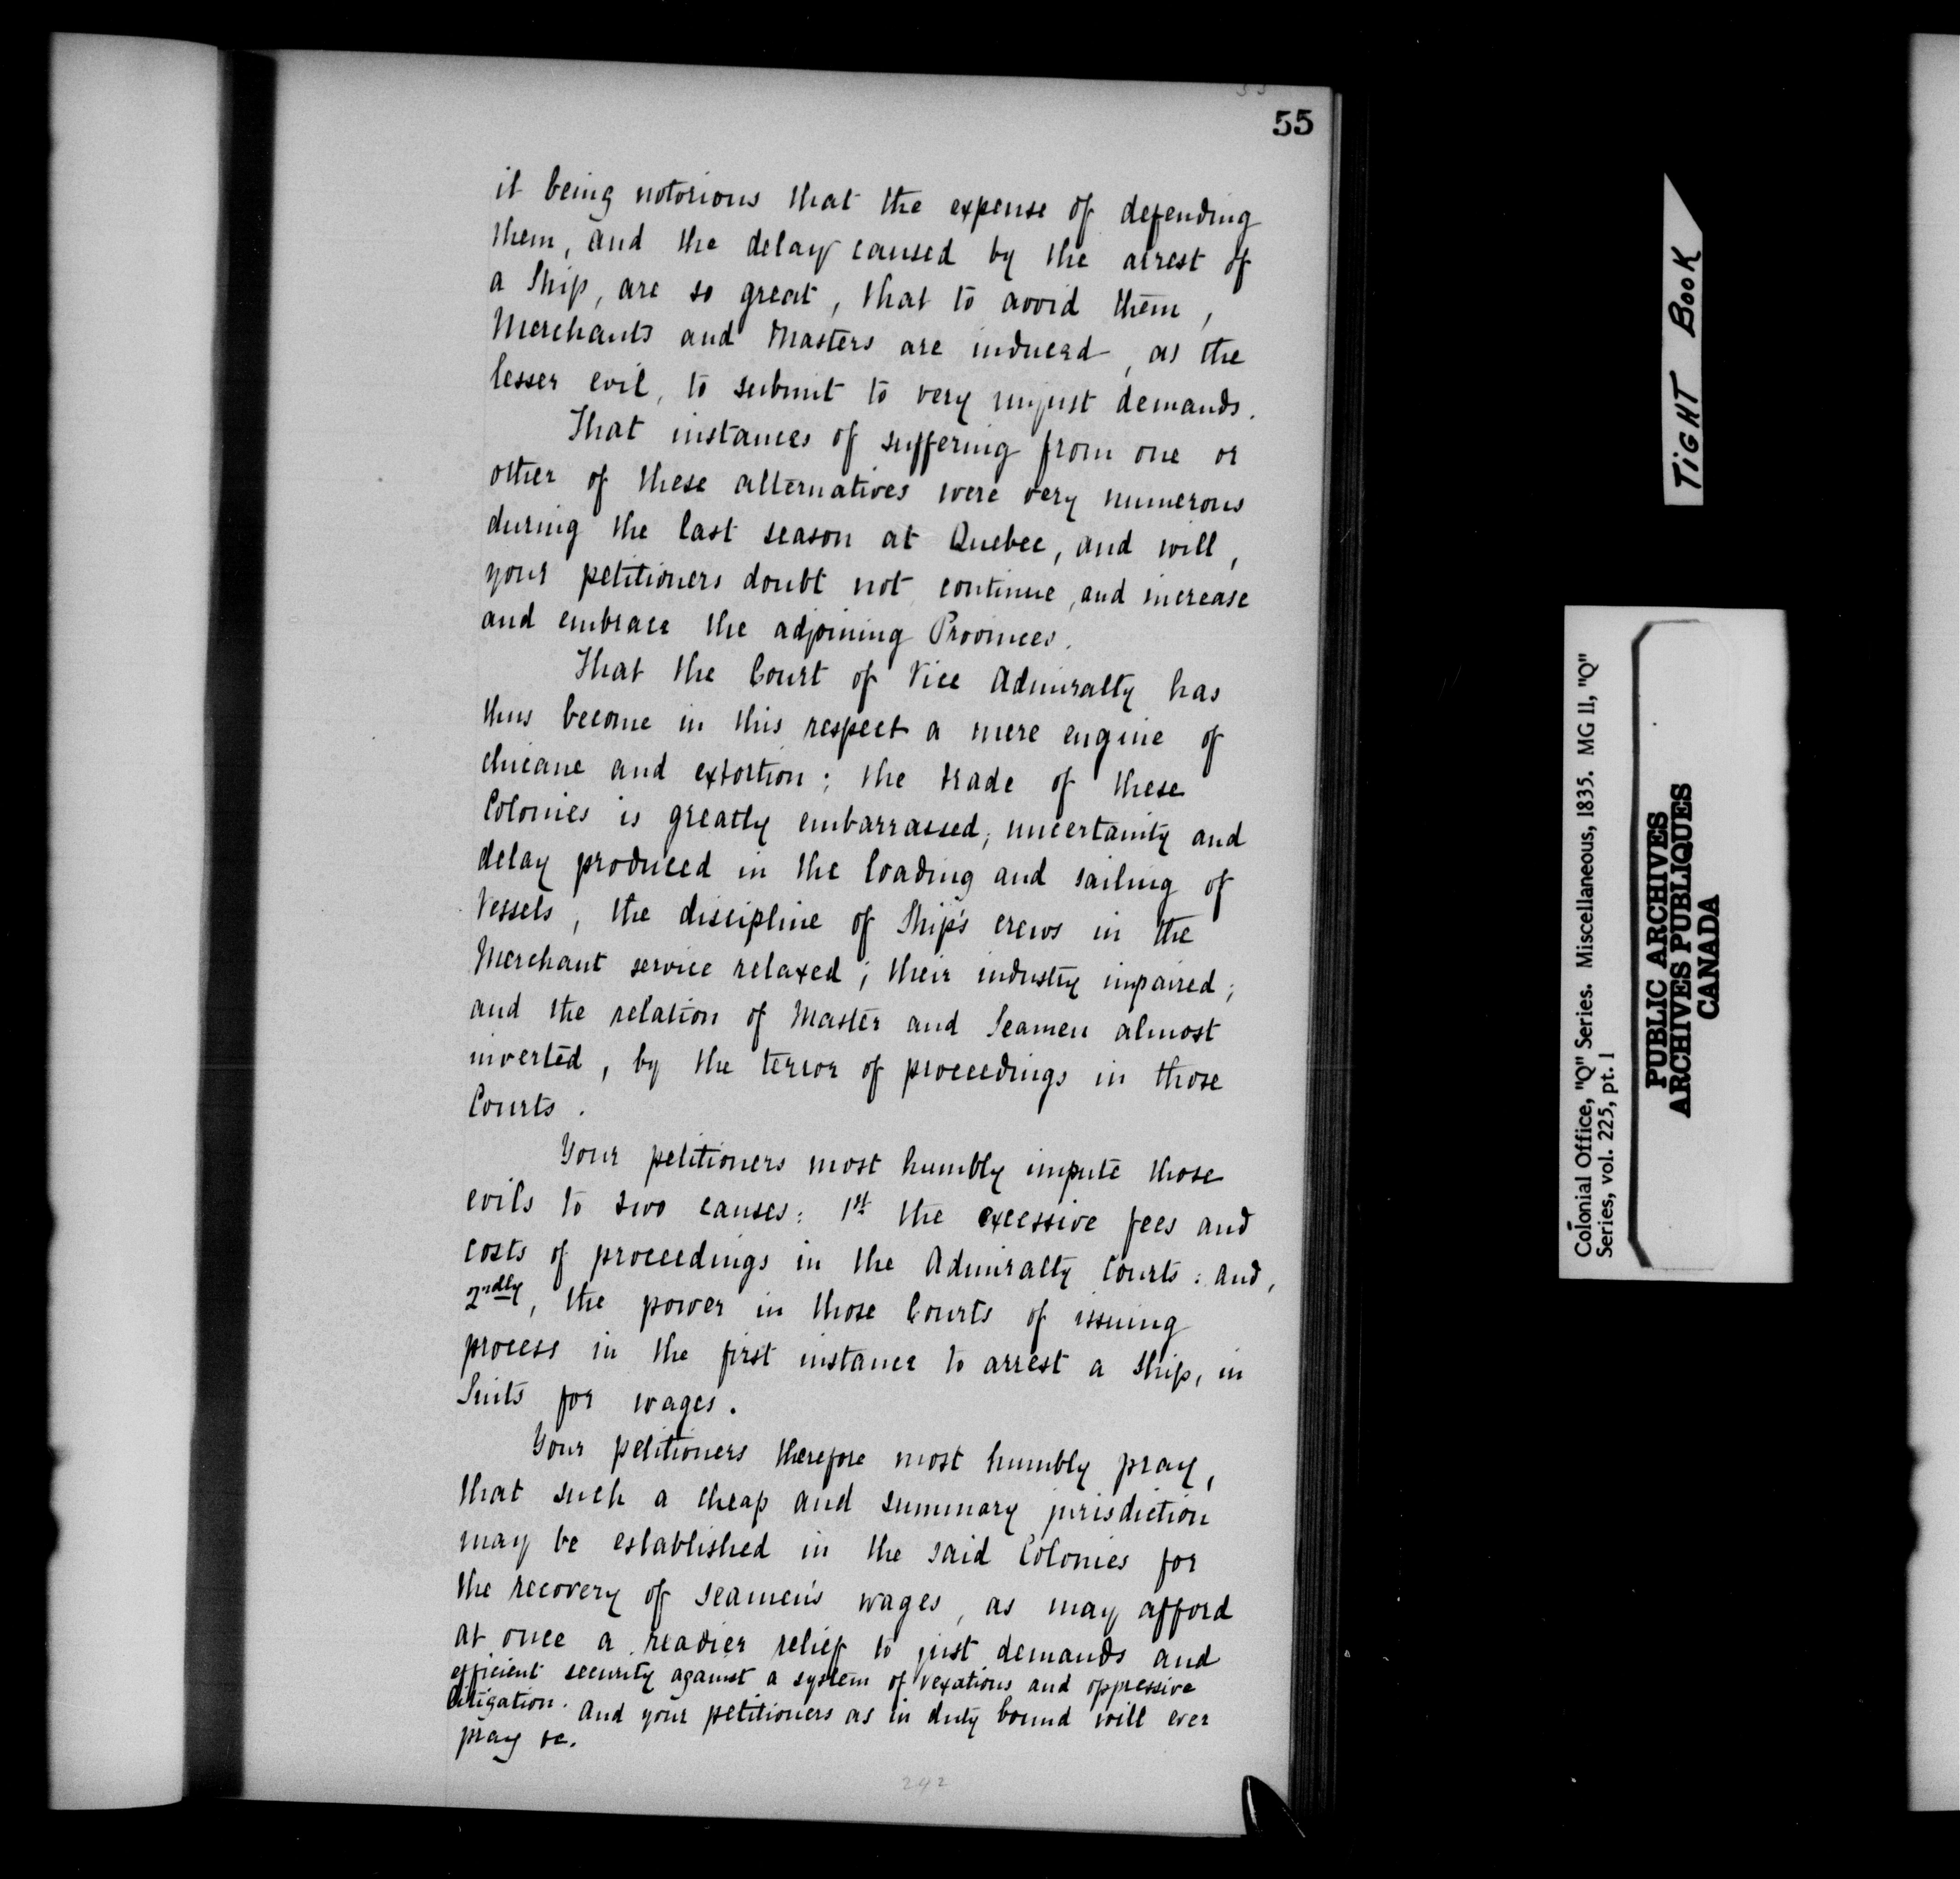 55
it being notorious that the expense of defending
them, and the delay caused by the arrest of
a Ship, are so great, that to avoid them,
Merchants and Masters are induced, as the
lesser evil, to submit to very unjust demands.
That instances of suffering from one or
other of these alternatives were very numerous
during the last season at Quebec, and will,
your petitioners doubt not continue, and increase
and embrace the adjoining Provinces.
That the Court of Vice Admiralty has
thus become in this respect a mere engine of
chicane and extortion; the trade of these
Colonies is greatly embarrassed; uncertainty and
delay produced in the loading and sailing of
Vessels, the discipline of Ship's crews in the
Merchant service relaxed; their industry impaired;
and the relation of Master and Seamen almost
inverted, by the terror of proceedings in those
Courts.
Your petitioners most humbly impute those
evils to two causes: 1st the excessive fees and
costs of proceedings in the Admiralty Courts: and,
2ndly, the power in those Courts of issuing
process in the first instance to arrest a Ship, in
Suits for wages.
Your petitioners therefore most humbly pray,
that such a cheap and summary jurisdiction
may be established in the said Colonies for
the recovery of seamen's wages, as may afford
at once a readier relief to just demands and
efficient security against a system of vexatious and oppressive
litigation. And your petitioners as in duty bound will ever
pray &c.
242
TIGHT BOOK
Colonial Office, "Q" Series. Miscellaneous, 1835. MG 11, "Q"
Series, vol. 225, pt. 1
PUBLIC ARCHIVES
ARCHIVES PUBLIQUES
CANADA